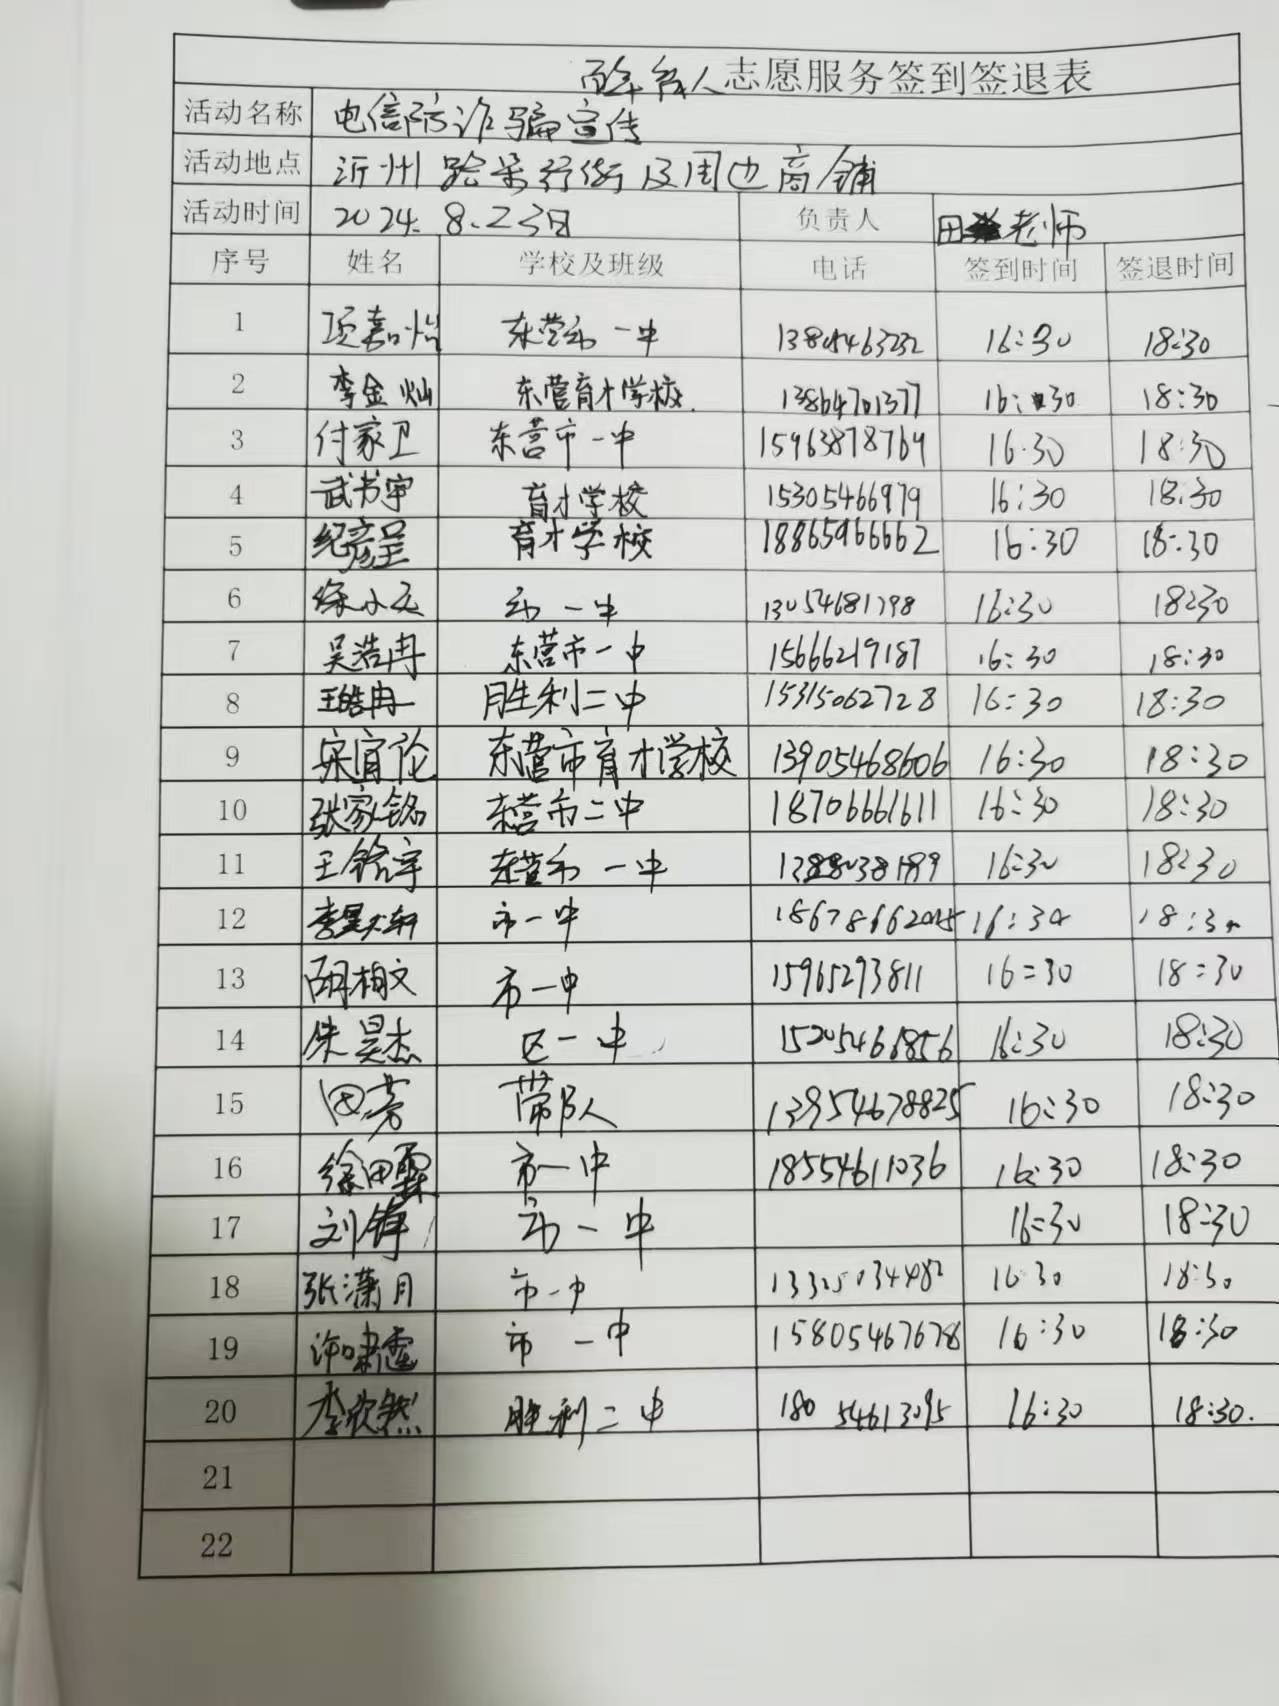 志愿服务签到签退表
活动名称 电信防诈骗宣传
活动地点 沂州路步行街及周边商铺
活动时间 2024.8.23日 负责人 田老师
序号 姓名 学校及班级 电话 签到时间 签退时间
1 项嘉怡 东营市一中 13805463232 16:30 18:30
2 李金灿 东营育才学校. 13864701377 16:30 18:30
3 付家卫 东营市一中 15963878769 16:30 18:30
4 武书宇 育才学校 15305466979 16:30 18:30
5 纪彦呈 育才学校 18865966662 16:30 18:30
6 徐小 市一中 13054681798 16:30 18:30
7 吴浩冉 东营市一中 15666219187 16:30 18:30
8 王皓冉 胜利二中 15315062728 16:30 18:30
9 宋宜伦 东营市育才学校 13905468606 16:30 18:30
10 张家铭 东营市二中 18706661611 16:30 18:30
11 王铭宇 东营市一中 16:30 18:30
12 李昊轩 市一中 16:30 18:30
13 胡相文 市一中 15965293811 16:30 18:30
14 朱昊杰 区一中 15205466856 16:30 18:30
15 田芳 带队人 13954678825 16:30 18:30
16 徐田霖 市一中 18554611036 16:30 18:30
17 刘铮 市一中 16:30 18:30
18 张潇月 市一中 13325034482 16:30 18:30
19 许啸 市一中 15805467678 16:30 18:30
20 李欣然 胜利二中 18054613095 16:30 18:30.
21
22